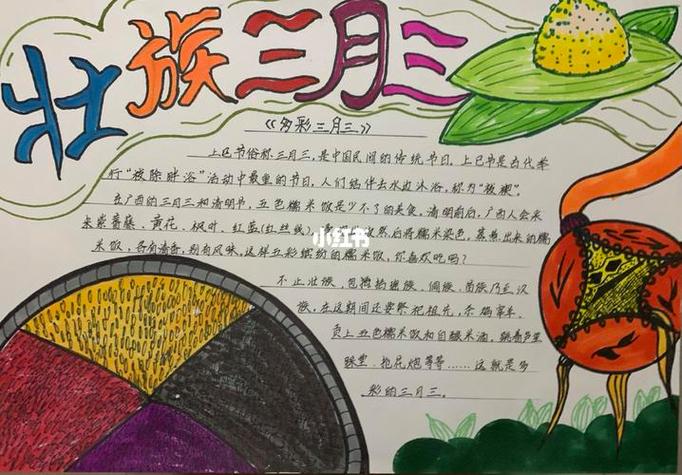 壮族三月三
《多彩三月三》
上巳节俗称三月三,是中国民间的传统节日。上巳节是古代举
行“祓除畔浴”活动中最重的节日,人们结伴去水边沐浴,称为“祓禊”。
在广西的三月三和清明节,五色糯米饭是少不了的美食。清明前后,广西人会采
来紫蕃藤、黄花、枫叶、红蓝(红丝线),然后将糯米染色,蒸煮出来的糯
米饭,各有清香,别有风味,这样五彩缤纷的糯米饭,你喜欢吃吗?
小红书
不止壮族,包括瑶族、侗族、苗族乃至汉
族,在这期间还要祭祀祖先,杀鸡宰羊。
贡上五色糯米饭和自酿米酒,跳
抢花炮等等……这就是多
彩的三月三。